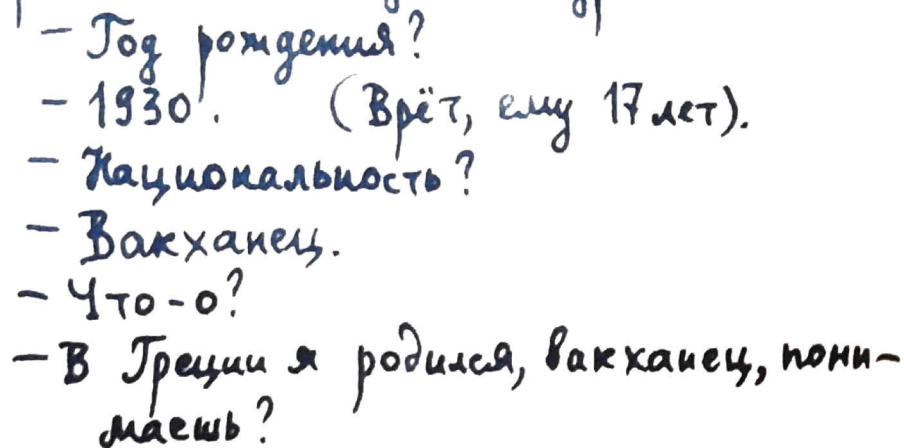 - Год рождения?
- 1930. (Врёт, ему 17 лет).
- Национальность?
- Вакханец.
- Что-о?
- В Греции я родился, вакханец, пони-
маешь?